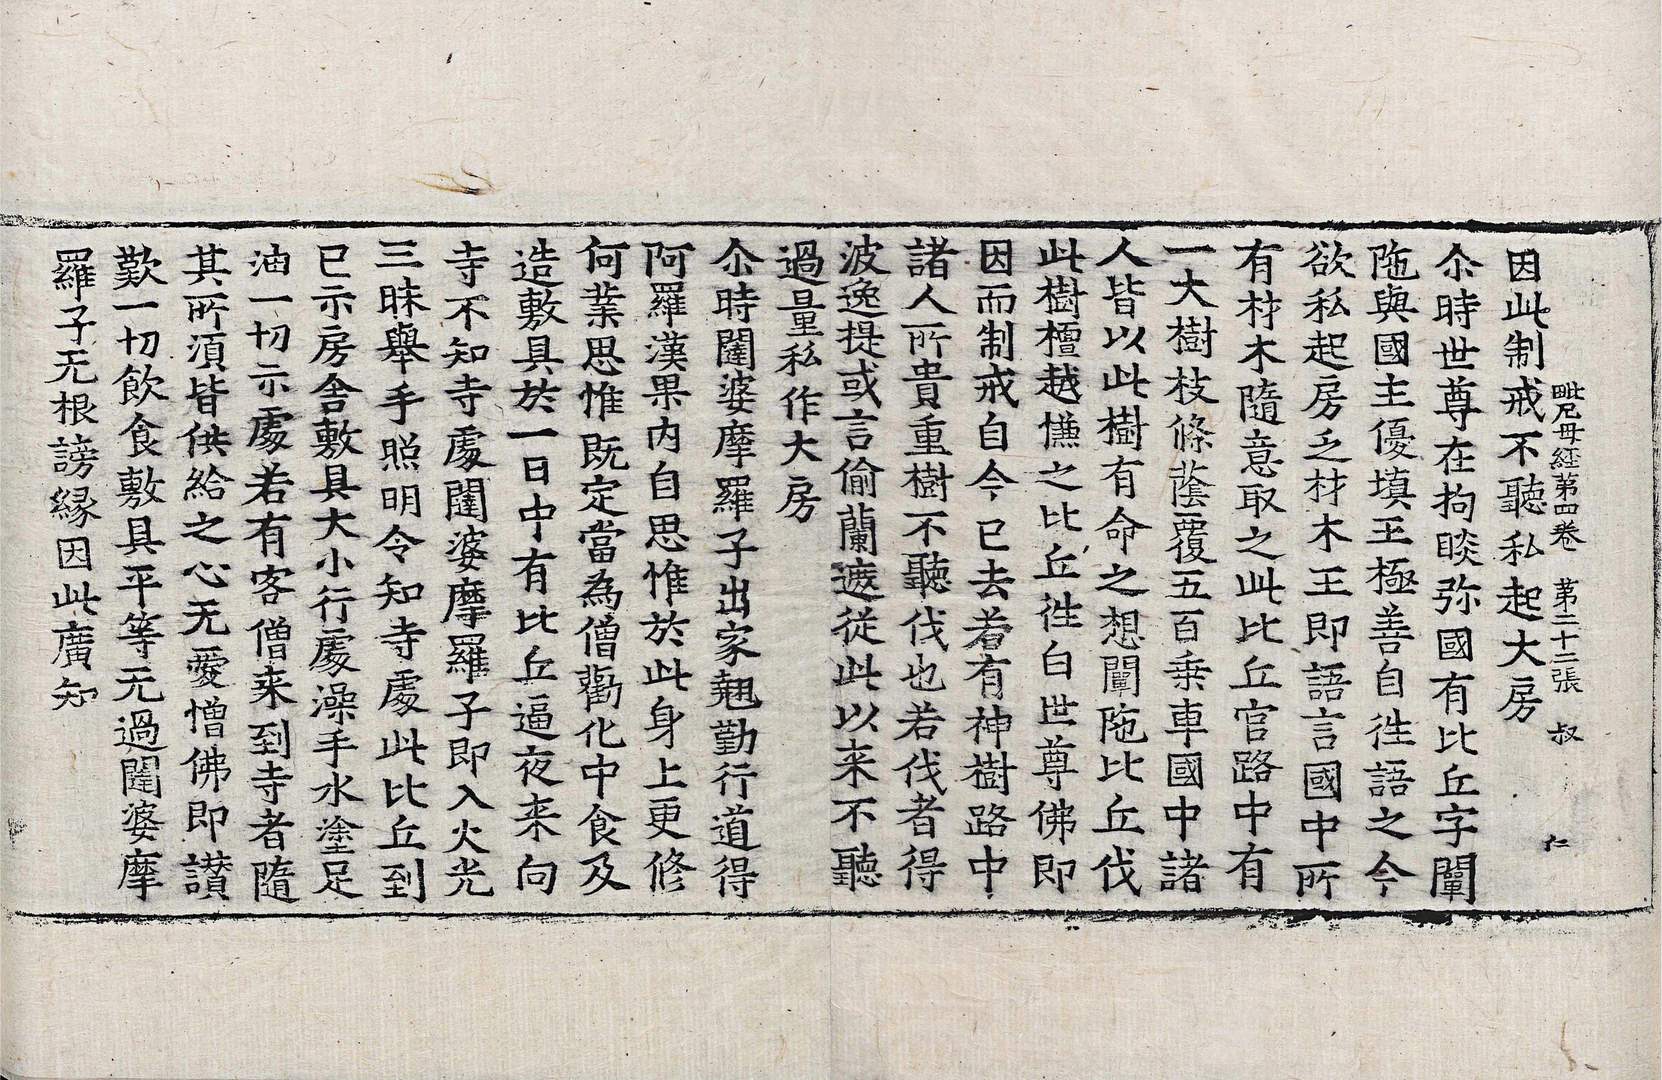 毗尼母經第四卷 第二十二張 叔 仁
因此制戒不聽私起大房
尒時世尊在拘睒弥國有比丘字闡
陁與國主優填王極善自徃語之今
欲私起房乏材木王即語言國中所
有材木隨意取之此比丘官路中有
一大樹枝條蔭覆五百乗車國中諸
人皆以此樹有命之想闡陁比丘伐
此樹檀越慊之比丘徃白世尊佛即
因而制戒自今已去若有神樹路中
諸人所貴重樹不聽伐也若伐者得
波逸提或言偷蘭遮従此以来不聽
過量私作大房
尒時闥婆摩羅子出家翹勤行道得
阿羅漢果内自思惟於此身上更修
何業思惟既定當為僧勸化中食及
造敷具於一日中有比丘逼夜来向
寺不知寺處闥婆摩羅子即入火光
三昧舉手照明令知寺處此比丘到
已示房舎敷具大小行處澡手水塗足
油一切示處若有客僧来到寺者隨
其所湏皆供給之心无愛憎佛即讃
歎一切飲食敷具平等无過闥婆摩
羅子无根謗縁因此廣知